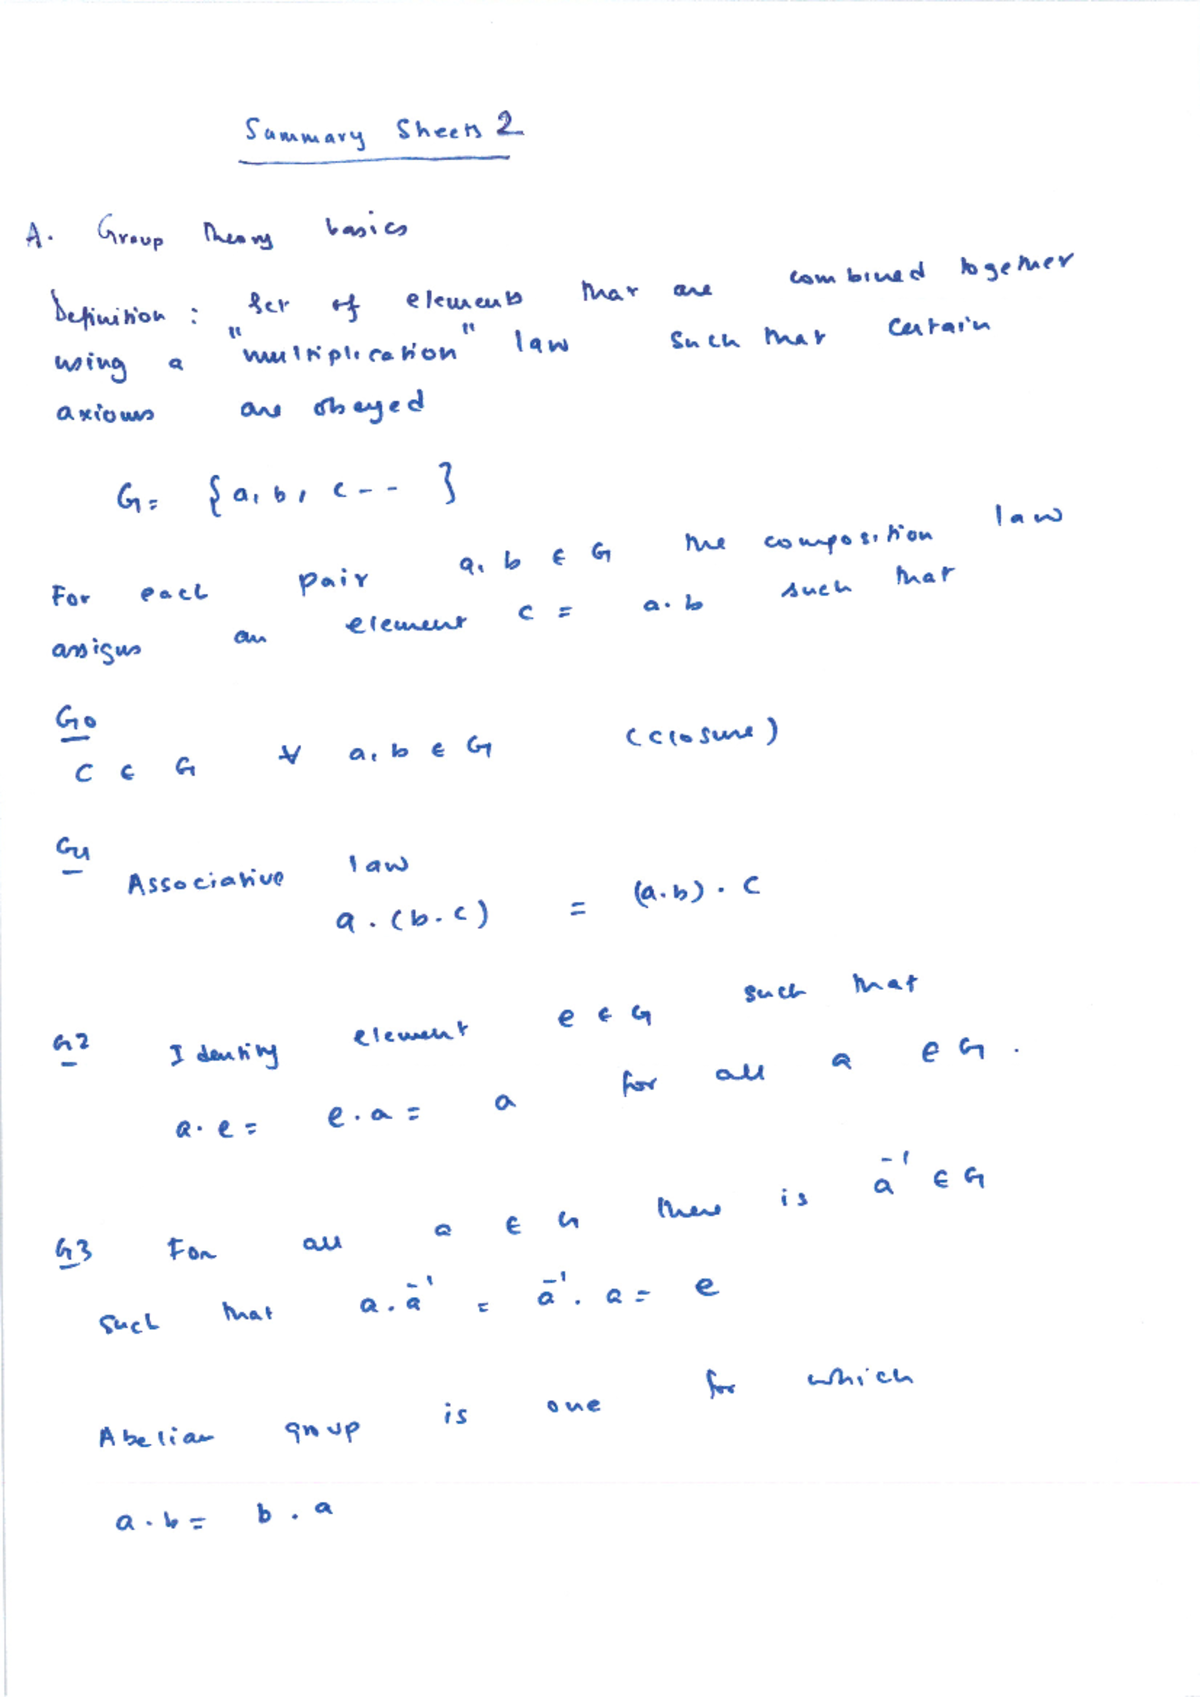 Summary Sheets 2
A. Group Theory basics
Definition : Set of elements that are combined together
using a "multiplication" law such that certain
axioms are obeyed
G = {a, b, c -- }
For each pair a, b ∈ G the composition law
assigns an element c = a.b such that
G0
C ∈ G ∀ a, b ∈ G (closure)
G1
Associative law
a . (b . c) = (a.b) . c
G2 Identity element e ∈ G such that
a. e = e . a = a for all a ∈ G .
G3 For all a ∈ G there is a⁻¹ ∈ G
such that a . a⁻¹ = a⁻¹ . a = e
Abelian group is one for which
a . b = b . a